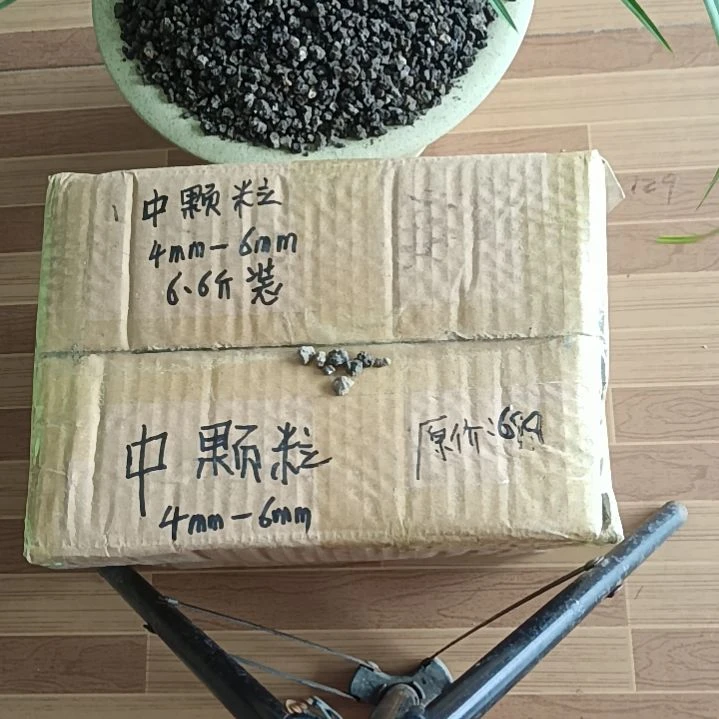 中颗粒
4mm-6mm
6.6斤装
中颗粒
4mm-6mm
原价: